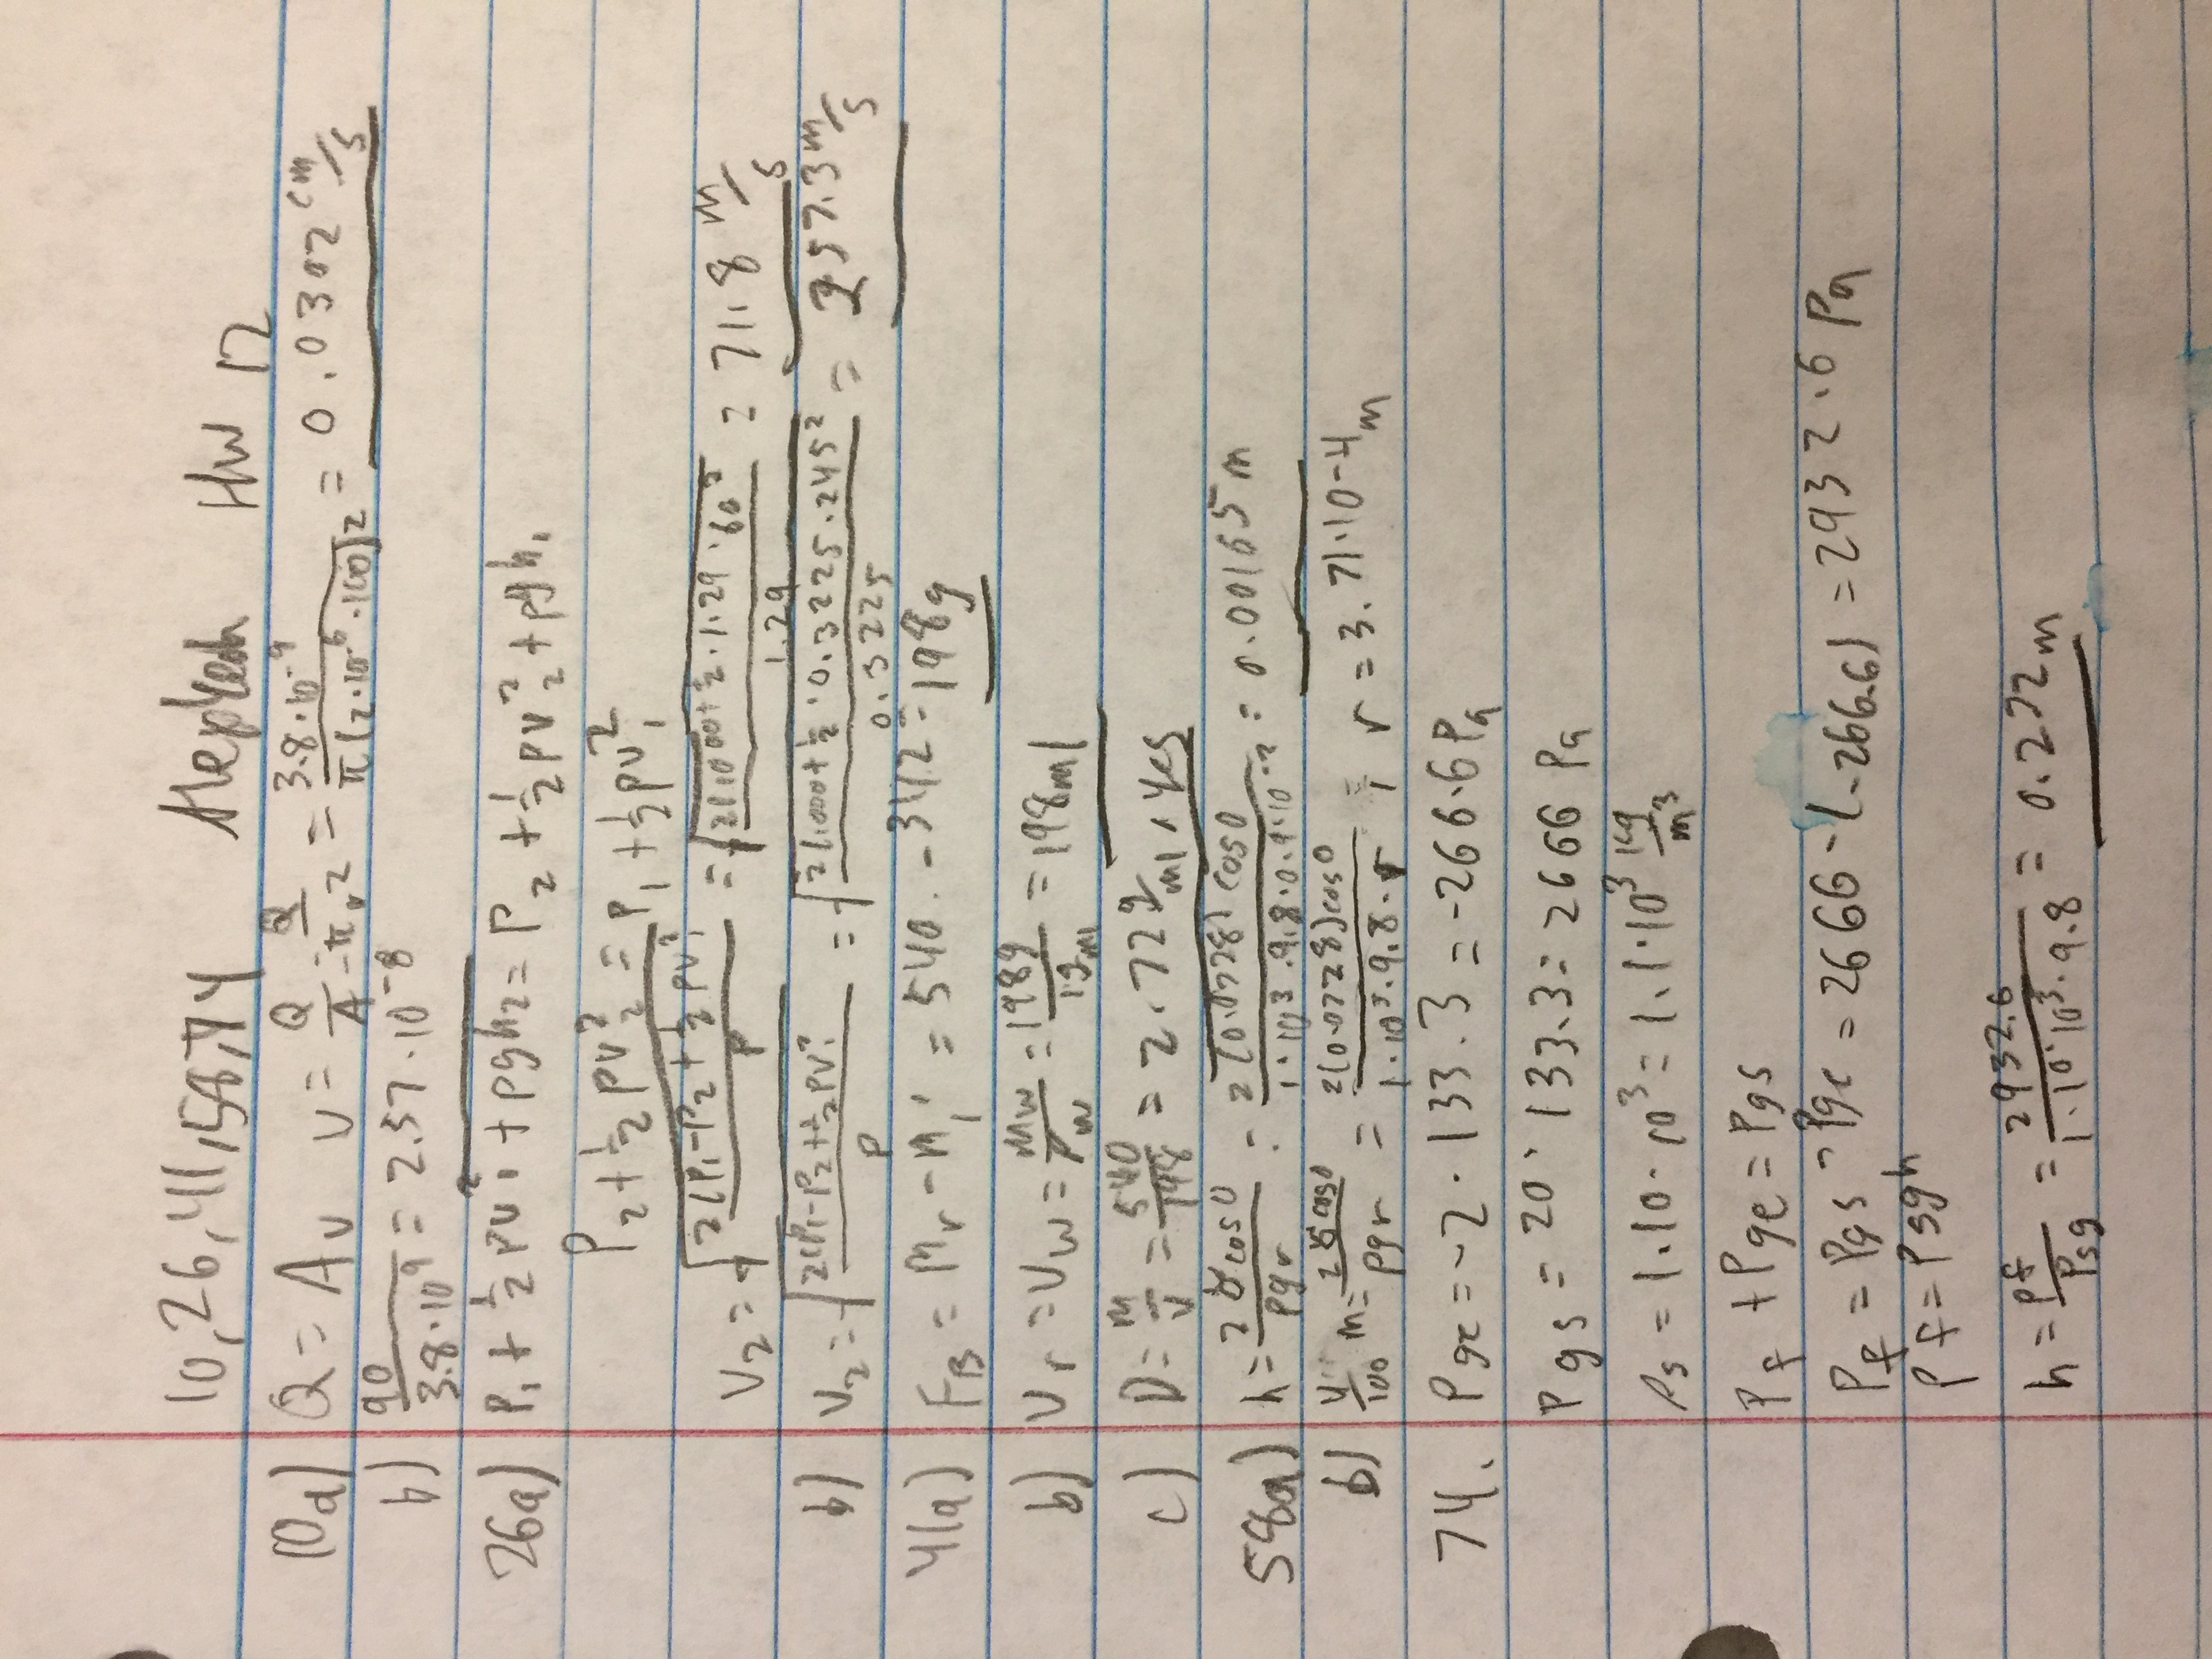 10, 26, 41, 58, 74 HW 12
10a) Q = Av v = Q/A = Q/πr2 = 3.8·10^-9/π(2·10^-6·100)2 = 0.0302 cm/s
b) 90/3.8·10^9 = 2.37·10^-8
26a) P₁ + 1/2 ρv₁² + ρgh₂ = P₂ + 1/2 ρv₂² + ρgh₁
P₂ + 1/2 ρv₂² = P₁ + 1/2 ρv₁²
V₂ = √(2(P₁-P₂ + 1/2 ρv₁²/ρ = √(2(1000 + 1/2 · 1.29 · 60²/1.29 = 71.8 m/s
b) V₂ = √(2(P₁-P₂ + 1/2 ρv₁²/ρ = √(2(1000 + 1/2 · 0.3225 · 245²/0.3225 = 257.3 m/s
41a) F_B = M_r - M_i' = 540. - 342 = 198g
b) V_r = V_w = m_w/ρ_w = 198g/1g/ml = 198ml
c) D = m/v = 540/198 = 2.72 g/ml, yes
58a) h = 2γcosθ/ρgr = 2(0.0728)cos0/1·10^3·9.8·0.9·10^-2 = 0.00165 m
b) 4/100 m = 2γcosθ/ρgr = 2(0.0728)cos0/1·10^3·9.8·r ; r = 3.71·10^-4 m
74. P_ge = -2 · 133.3 = -266.6 Pa
P_gs = 20 · 133.3 = 2666 Pa
ρ_s = 1.10 · 10^3 = 1.1·10^3 kg/m^3
P_f + P_ge = P_gs
P_f = P_gs - P_ge = 2666 - (-266.6) = 2932.6 Pa
P_f = ρ_sgh
h = P_f/ρ_sg = 2932.6/1.10·10^3·9.8 = 0.272m